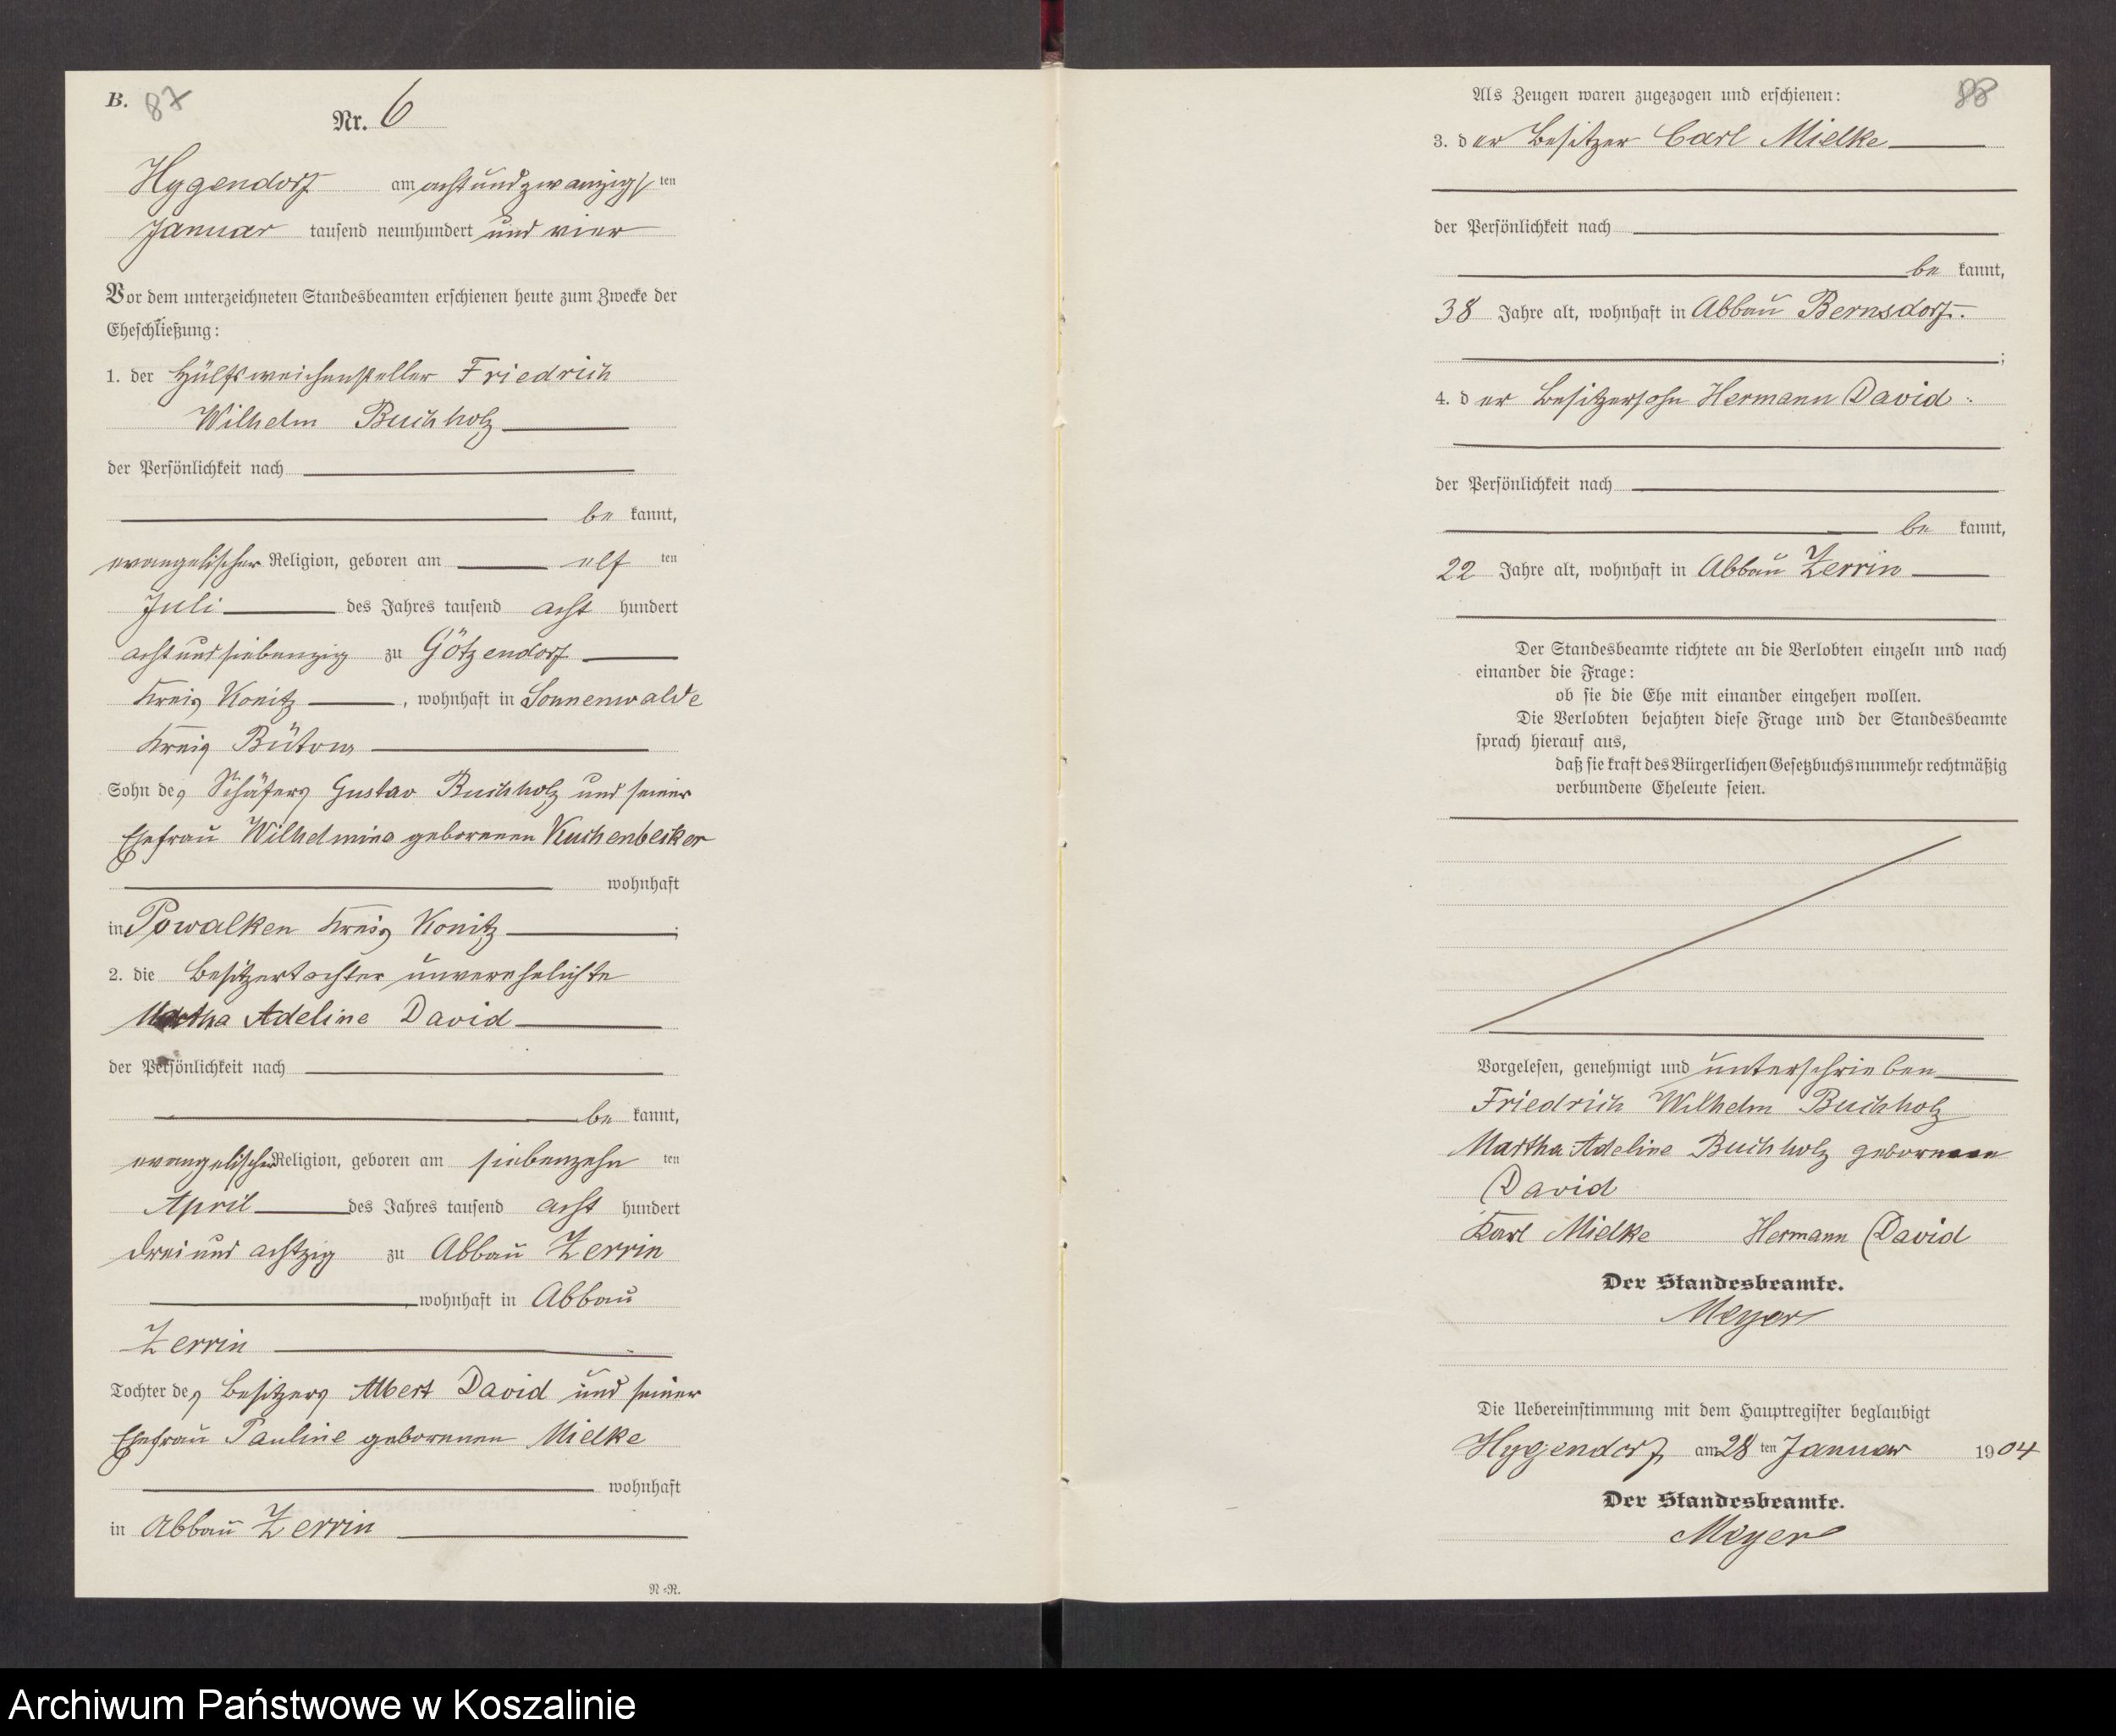 B. 87
Nr. 6
Hygendorf am achtundzwanzigsten
Januar tausend neunhundert und vier
Vor dem unterzeichneten Standesbeamten erschienen heute zum Zwecke der
Eheschließung:
1. der Hülfsweichensteller Friedrich
Wilhelm Buchholz
der Persönlichkeit nach
be kannt,
evangelischer Religion, geboren am elf ten
Juli des Jahres tausend acht hundert
achtundsiebenzig zu Götzendorf
Kreis Konitz, wohnhaft in Sonnenwalde
Kreis Bütow
Sohn des Schäfers Gustav Buchholz und seiner
Ehefrau Wilhelmine geborenen Kuchenbecker
wohnhaft
in Powalken Kreis Konitz;
2. die Besitzertochter unverehelichte
Martha Adeline David
der Persönlichkeit nach
be kannt,
evangelischer Religion, geboren am siebenzehn ten
April des Jahres tausend acht hundert
dreiundachtzig zu Abbau Zerrin
, wohnhaft in Abbau
Zerrin
Tochter des Besitzers Albert David und seiner
Ehefrau Pauline geborenen Mielke
wohnhaft
in Abbau Zerrin
N=R.
88
Als Zeugen waren zugezogen und erschienen:
3. der Besitzer Carl Mielke
der Persönlichkeit nach
be kannt,
38 Jahre alt, wohnhaft in Abbau Bernsdorf.
;
4. der Besitzersohn Hermann David
der Persönlichkeit nach
be kannt,
22 Jahre alt, wohnhaft in Abbau Zerrin
Der Standesbeamte richtete an die Verlobten einzeln und nach
einander die Frage:
ob sie die Ehe mit einander eingehen wollen.
Die Verlobten bejahten diese Frage und der Standesbeamte
sprach hierauf aus,
daß sie kraft des Bürgerlichen Gesetzbuchs nunmehr rechtmäßig
verbundene Eheleute seien.
Vorgelesen, genehmigt und unterschrieben
Friedrich Wilhelm Buchholz
Martha Adeline Buchholz geborene
David
Karl Mielke Hermann David
Der Standesbeamte.
Meyer
Die Uebereinstimmung mit dem Hauptregister beglaubigt
Hygendorf am 28 ten Januar 1904
Der Standesbeamte.
Meyer
Archiwum Państwowe w Koszalinie